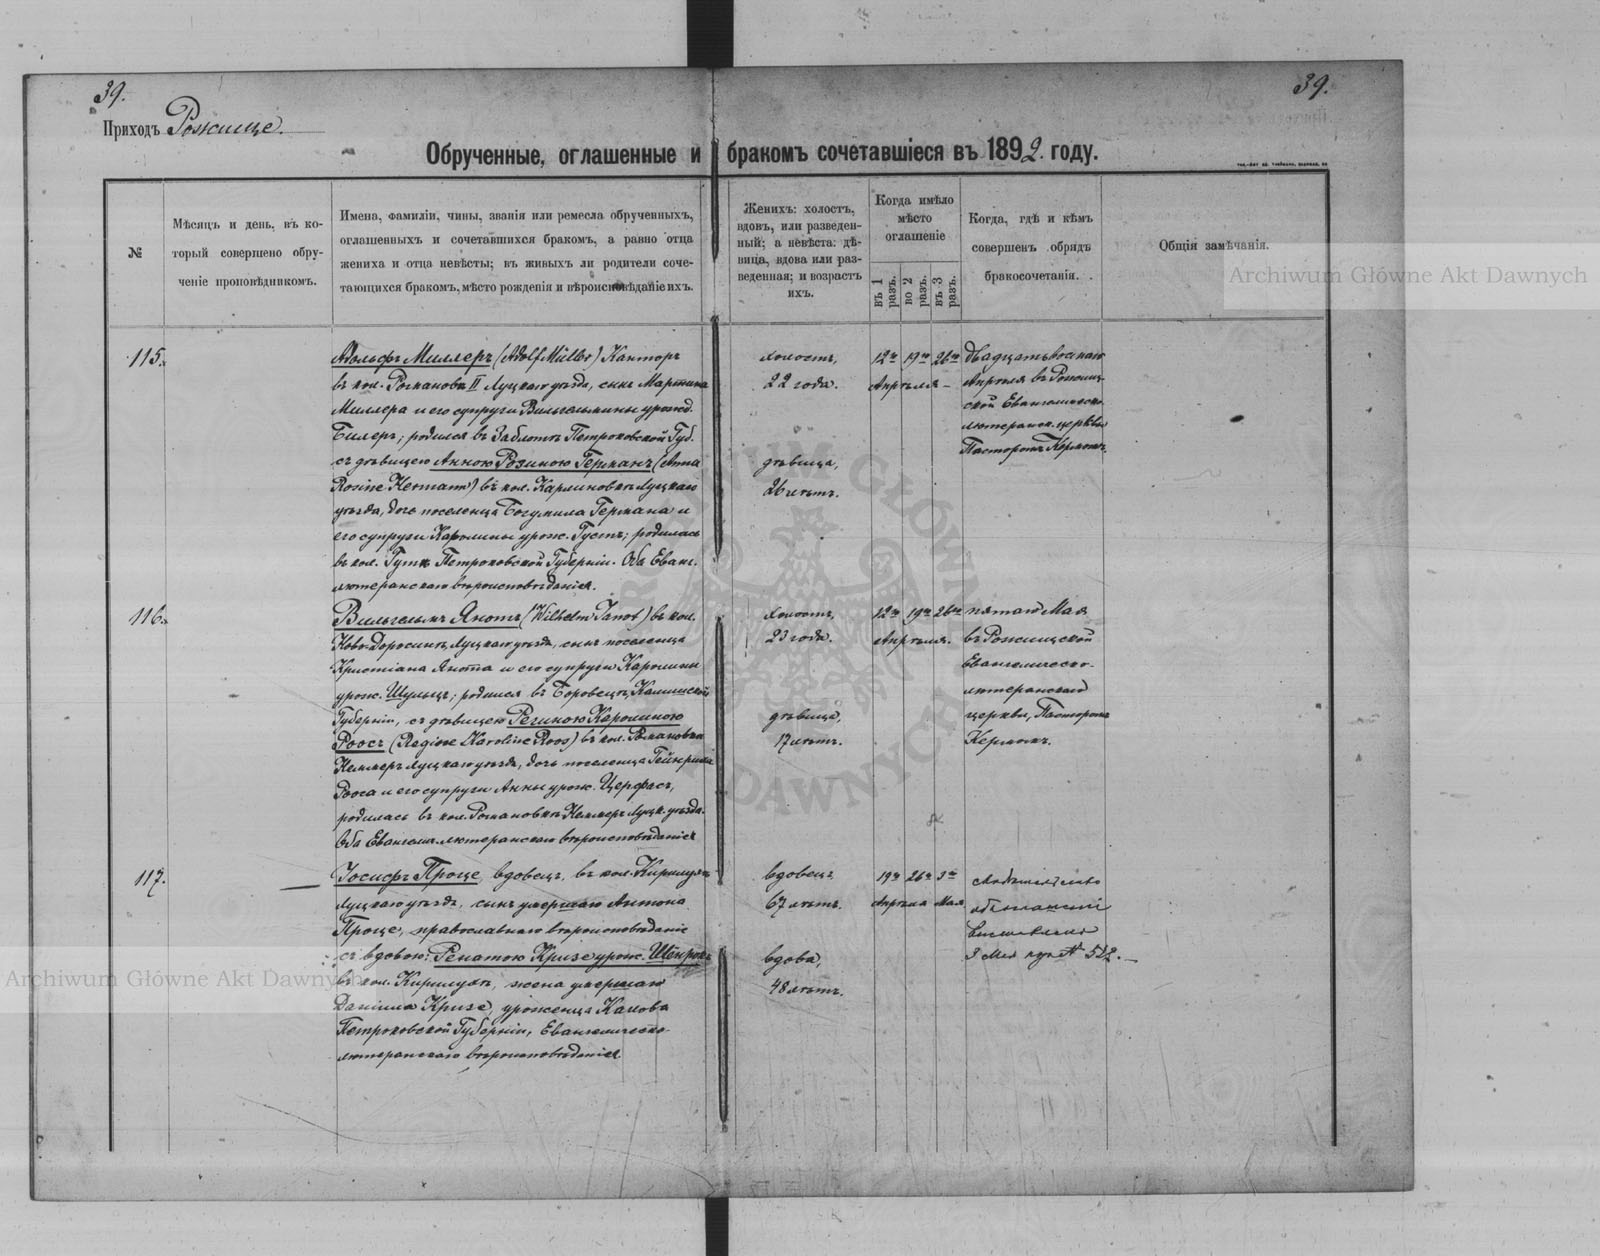 39.
39.
Приходъ Рожище.
Обрученные, оглашенные и бракомъ сочетавшіеся въ 1892. году.
№
Мѣсяцъ и день, въ ко-
торый совершено обру-
ченіе проповѣдникомъ.
Имена, фамиліи, чины, званія или ремесла обрученныхъ,
оглашенныхъ и сочетавшихся бракомъ, а равно отца
жениха и отца невѣсты; въ живыхъ ли родители соче-
тающихся бракомъ, мѣсто рожденія и вѣроисповѣданіе ихъ.
Женихъ: холостъ,
вдовъ, или разведен-
ный; а невѣста: дѣ-
вица, вдова или раз-
веденная; и возрастъ
ихъ.
Когда имѣло
мѣсто
оглашеніе
въ 1 разъ.
во 2 разъ.
въ 3 разъ.
Когда, гдѣ и кѣмъ
совершенъ обрядъ
бракосочетанія.
Общія замѣчанія.
115.
Адольфъ Миллеръ (Adolf Müller) Канторъ
въ кол. Романовъ II Луцкаго уѣзда, сынъ Мартина
Миллера и его супруги Вильгельмины урожд.
Билеръ; родился въ Заблоть Петроковской Губ.
съ дѣвицею Анною Розиною Германъ (Anna
Rosine Hermann) въ кол. Каролиновкѣ Луцкаго
уѣзда, дочь поселенца Богумила Германа и
его супруги Каролины урож. Густъ; родилась
въ кол. Гутѣ Петроковской Губерніи. Оба Еванг.
лютеранскаго вѣроисповѣданія.
холостъ,
22 года.
дѣвица,
26 лѣтъ.
12го 19го 26го
Апрѣля
Двадцатьвосьмаго
Апрѣля въ Рожищ-
ской Евангелическо-
лютеранск. церкви
Пасторомъ Кермомъ.
116.
Вильгельмъ Янотъ (Wilhelm Janot) въ кол.
Ново-Доросинѣ, Луцкаго уѣзда, сынъ поселенца
Христіана Янота и его супруги Каролины
урож. Шульцъ; родился въ Боровецъ, Калишской
Губерніи, съ дѣвицею Региною Каролиною
Роосъ (Regine Karoline Roos) въ кол. Романовкѣ
Кеммеръ Луцкаго уѣзда, дочь поселенца Гейнриха
Рооса и его супруги Анны урож. Церфасъ,
родилась въ кол. Романовкѣ Кеммеръ Луцк. уѣзда.
Оба Евангелич. лютеранскаго вѣроисповѣданія
холостъ,
23 года.
дѣвица,
17 лѣтъ.
12го 19го 26го
Апрѣля.
пятаго Мая
въ Рожищской
Евангелическо-
лютеранской
церкви, Пасторомъ
Кермомъ.
117.
Іосифъ Проце, вдовецъ, въ кол. Кирилухѣ
Луцкаго уѣзда, сынъ умершаго Антона
Проце, православнаго вѣроисповѣданія
съ вдовою: Ренатою Кризе урож.
въ кол. Кирилухѣ, жена умершаго
Даніила Кризе, уроженца
Петроковской Губерніи, Евангелическо-
лютеранскаго вѣроисповѣданія
вдовецъ
67 лѣтъ.
вдова,
48 лѣтъ.
19го 26го 3го
Апрѣля Мая
Свидѣтельство
3 Мая № 522.
Archiwum Główne Akt Dawnych
Archiwum Główne Akt Dawnych
ARCHIWUM GŁÓWNE AKT DAWNYCH